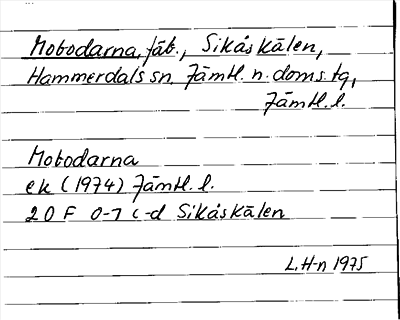 Mobodarna, fäb., Sikåskälen,
Hammerdals sn. Jämtl. n. doms. tg,
Jämtl. l.
Mobodarna
ek (1974) Jämtl. l.
20 F 0-7 c-d Sikåskälen
L. H-n 1975